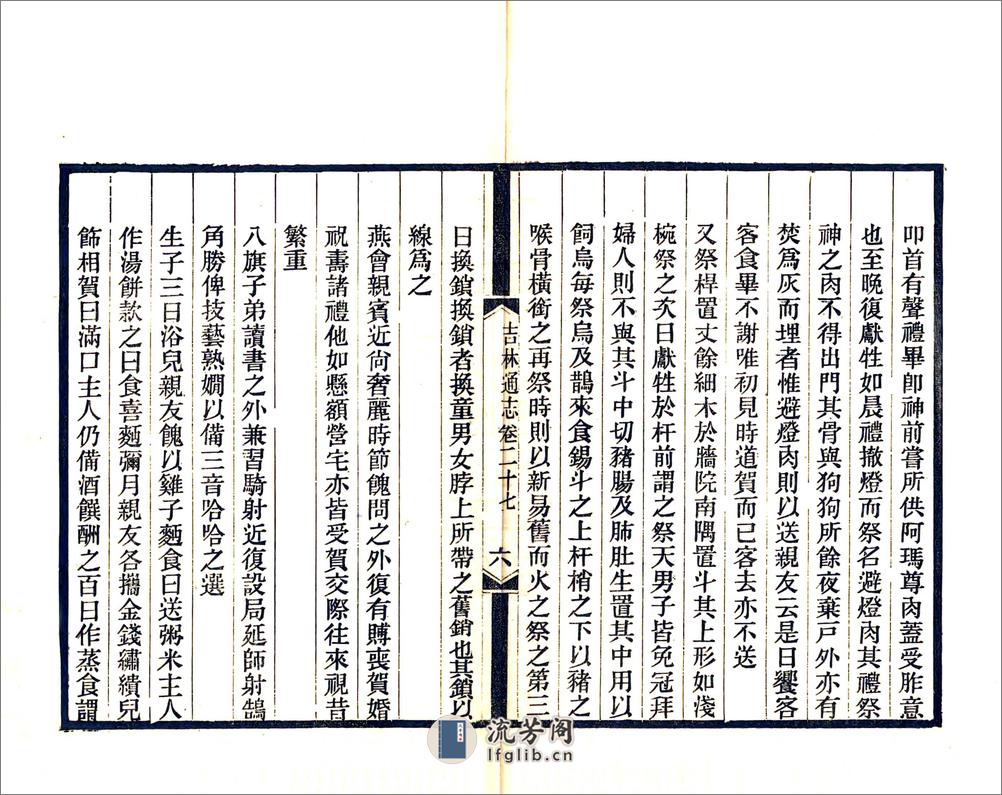 叩首有聲禮畢卽神前嘗所供阿瑪尊肉蓋受胙意
也至晚復獻牲如晨禮撤燈而祭名避燈肉其禮祭
神之肉不得出門其骨與狗狗所餘夜棄戸外亦有
焚爲灰而埋者惟避燈肉則以送親友云是日饗客
客食畢不謝唯初見時道賀而已客去亦不送
又祭桿置丈餘細木於牆院南隅置斗其上形如淺
椀祭之次日獻牲於杆前謂之祭天男子皆免冠拜
婦人則不與其斗中切豬腸及肺肚生置其中用以
飼烏每祭烏及鵲來食錫斗之上杆梢之下以豬之
喉骨橫銜之再祭時則以新易舊而火之祭之第三
吉林通志卷二十七
六
日換鎖換鎖者換童男女脖上所帶之舊銷也其鎖以
線爲之
燕會親賓近尙奢麗時節餽問之外復有賻喪賀婚
祝壽諸禮他如懸額營宅亦皆受賀交際往來視昔
繁重
八旗子弟讀書之外兼習騎射近復設局延師射鵠
角勝俾技藝熟嫻以備三音哈哈之選
生子三日浴兒親友餽以雞子麪食曰送粥米主人
作湯餅款之曰食喜麪彌月親友各攜金錢繡繢兒
飾相賀曰滿口主人仍備酒饌酬之百日作蒸食謂
流芳阁
lfglib.cn